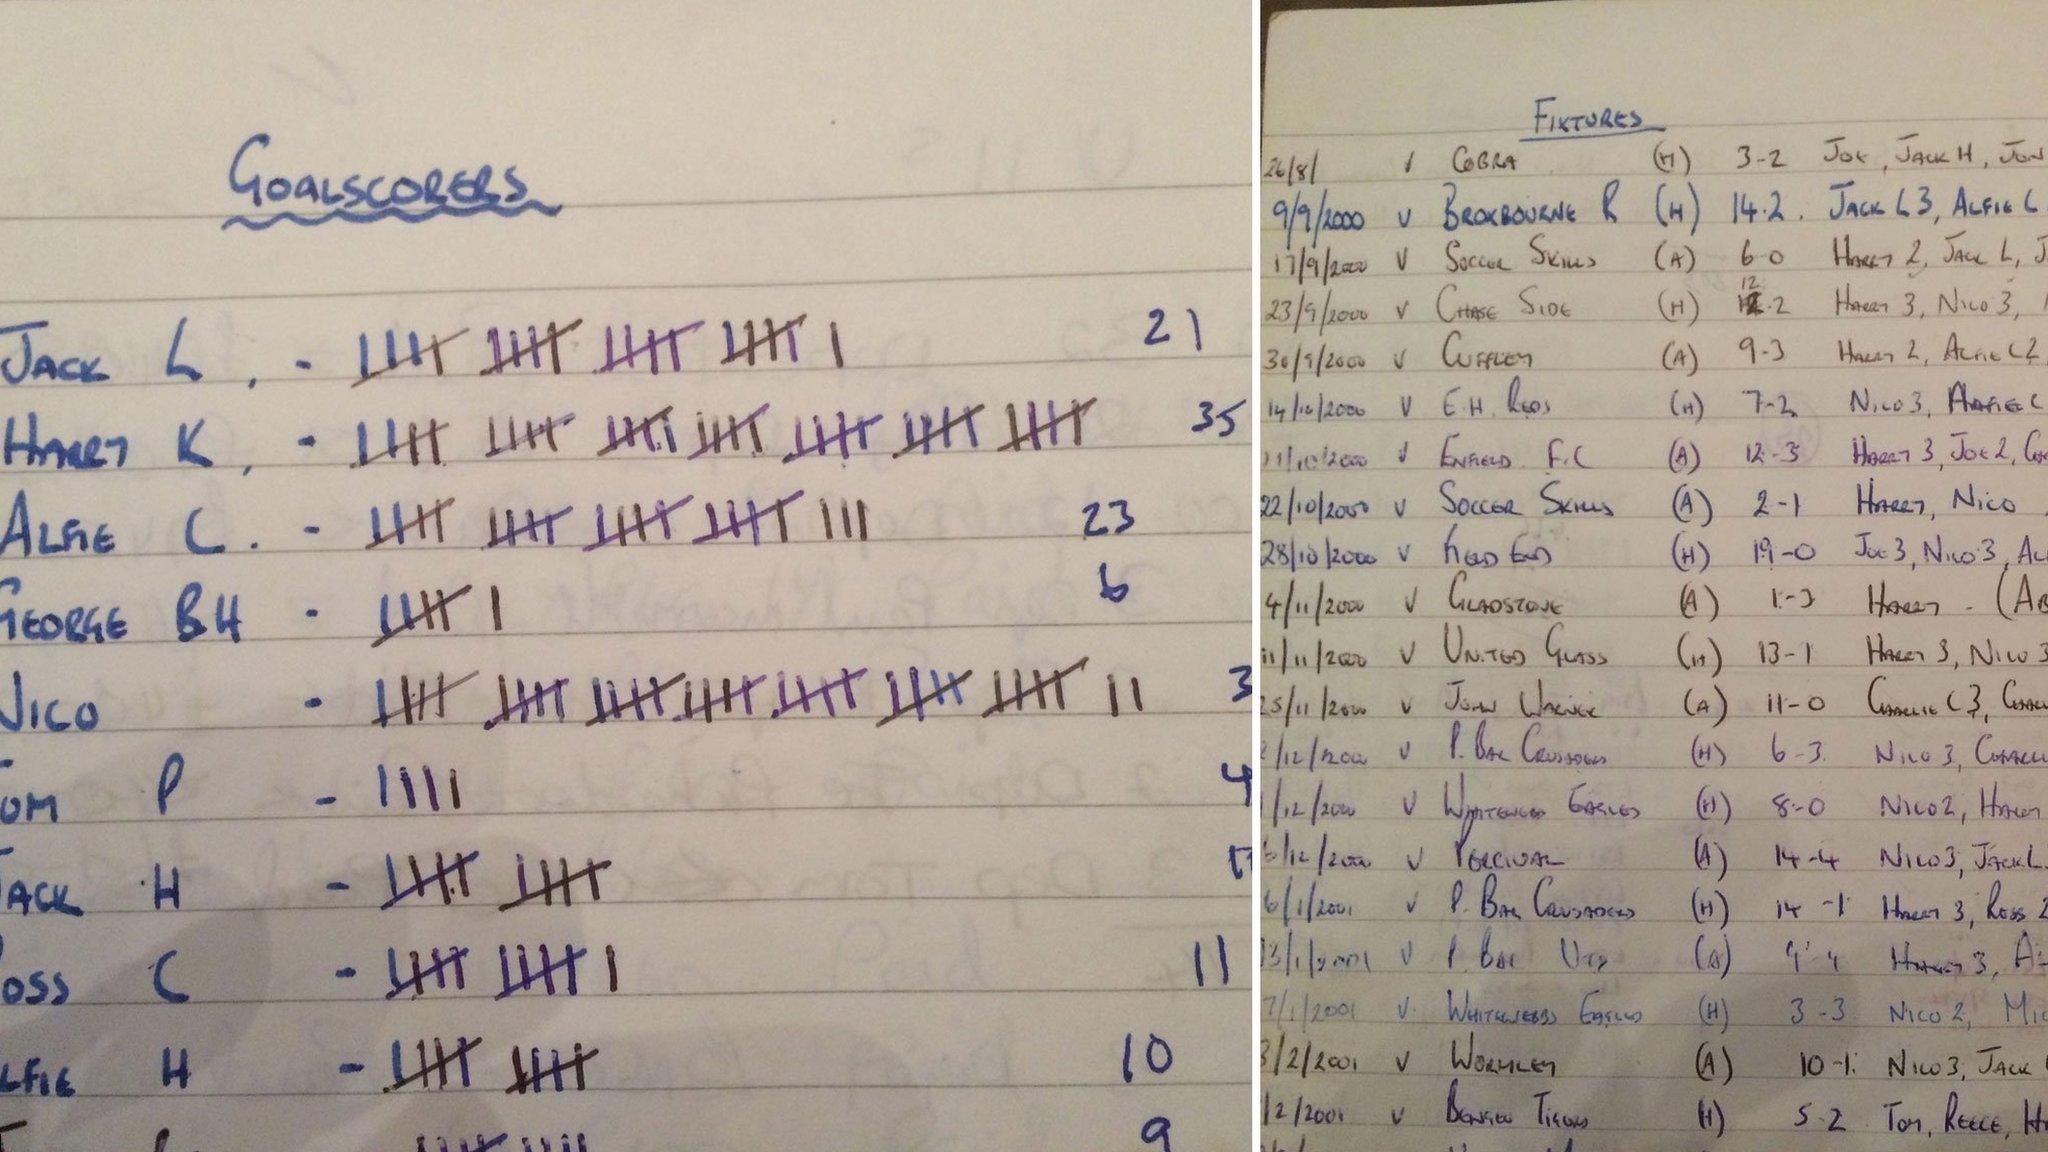 GOALSCORERS
JACK L. - 21
HARRY K. - 35
ALFIE C. - 23
GEORGE BH - 6
NICO - 3
TOM P - 4
JACK H -
ROSS C - 11
ALFIE H - 10
9
FIXTURES
26/8/ V COBRA (H) 3-2 JOE, JACK H, JON
9/9/2000 V BROXBOURNE R (H) 14-2. JACK L 3, ALFIE C
17/9/2000 V SOCCER SKILLS (A) 6-0 HARRY 2, JACK L, J
23/9/2000 V CHASE SIDE (H) 12-2 HARRY 3, NICO 3,
30/9/2000 V CUFFLEY (A) 9-3 HARRY 2, ALFIE C 2,
14/10/2000 V E.H. REDS (H) 7-2 NICO 3, ALFIE C
/10/2000 V ENFIELD F.C (A) 12-3 HARRY 3, JOE 2,
22/10/2000 V SOCCER SKILLS (A) 2-1 HARRY, NICO
28/10/2000 V (H) 19-0 JOE 3, NICO 3, AL
4/11/2000 V GLADSTONE (A) 1-3 HARRY - (AB
11/11/2000 V UNITED GLASS (H) 13-1 HARRY 3, NICO 3
25/11/2000 V JOHN WARNER (A) 11-0 CHARLIE C 3,
/12/2000 V P. BAR CRUSADERS (H) 6-3 NICO 3,
/12/2000 V WHITEWEBBS EAGLES (H) 8-0 NICO 2, HARRY
/12/2000 V PERCIVAL (A) 14-4 NICO 3, JACK L
6/1/2001 V P. BAR CRUSADERS (H) 14-1 HARRY 3, ROSS 2
13/1/2001 V P. BAR UTD (A) 4-4 HARRY 3, A
7/1/2001 V. WHITEWEBBS EAGLES (H) 3-3 NICO 2, MIC
3/2/2001 V WORMLEY (A) 10-1. NICO 3, JACK
/2/2001 V TIGERS (H) 5-2 TOM, REECE, H